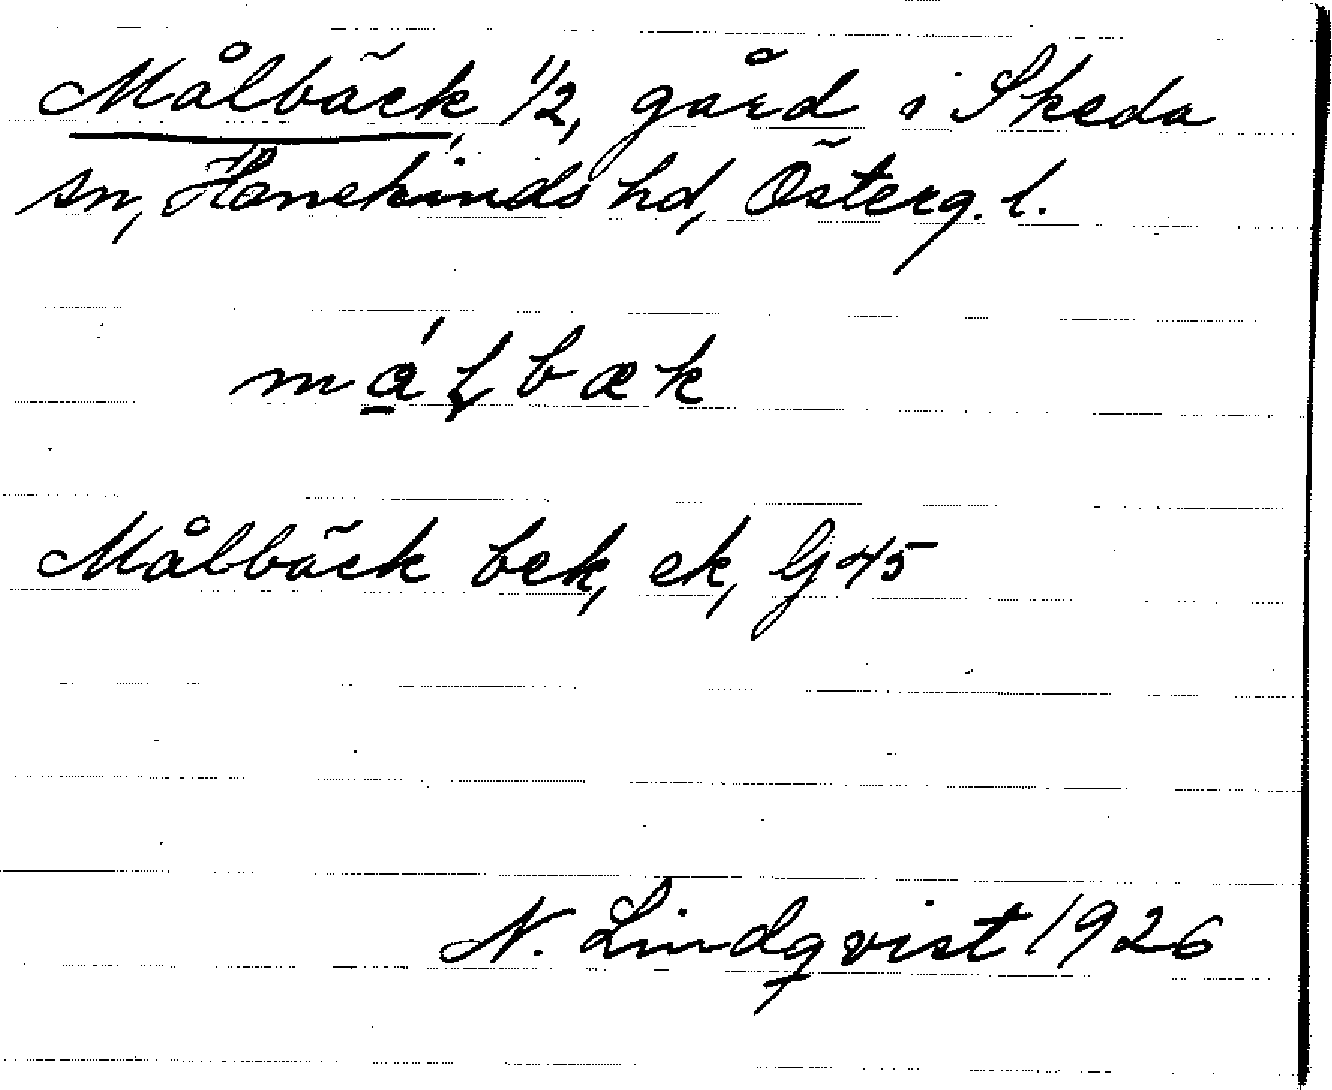 Målbäck 1/2, gård i Skeda
sn, Hanekinds hd, Österg. l.
Målbäck bek, ek, G 45
N. Lindqvist 1926